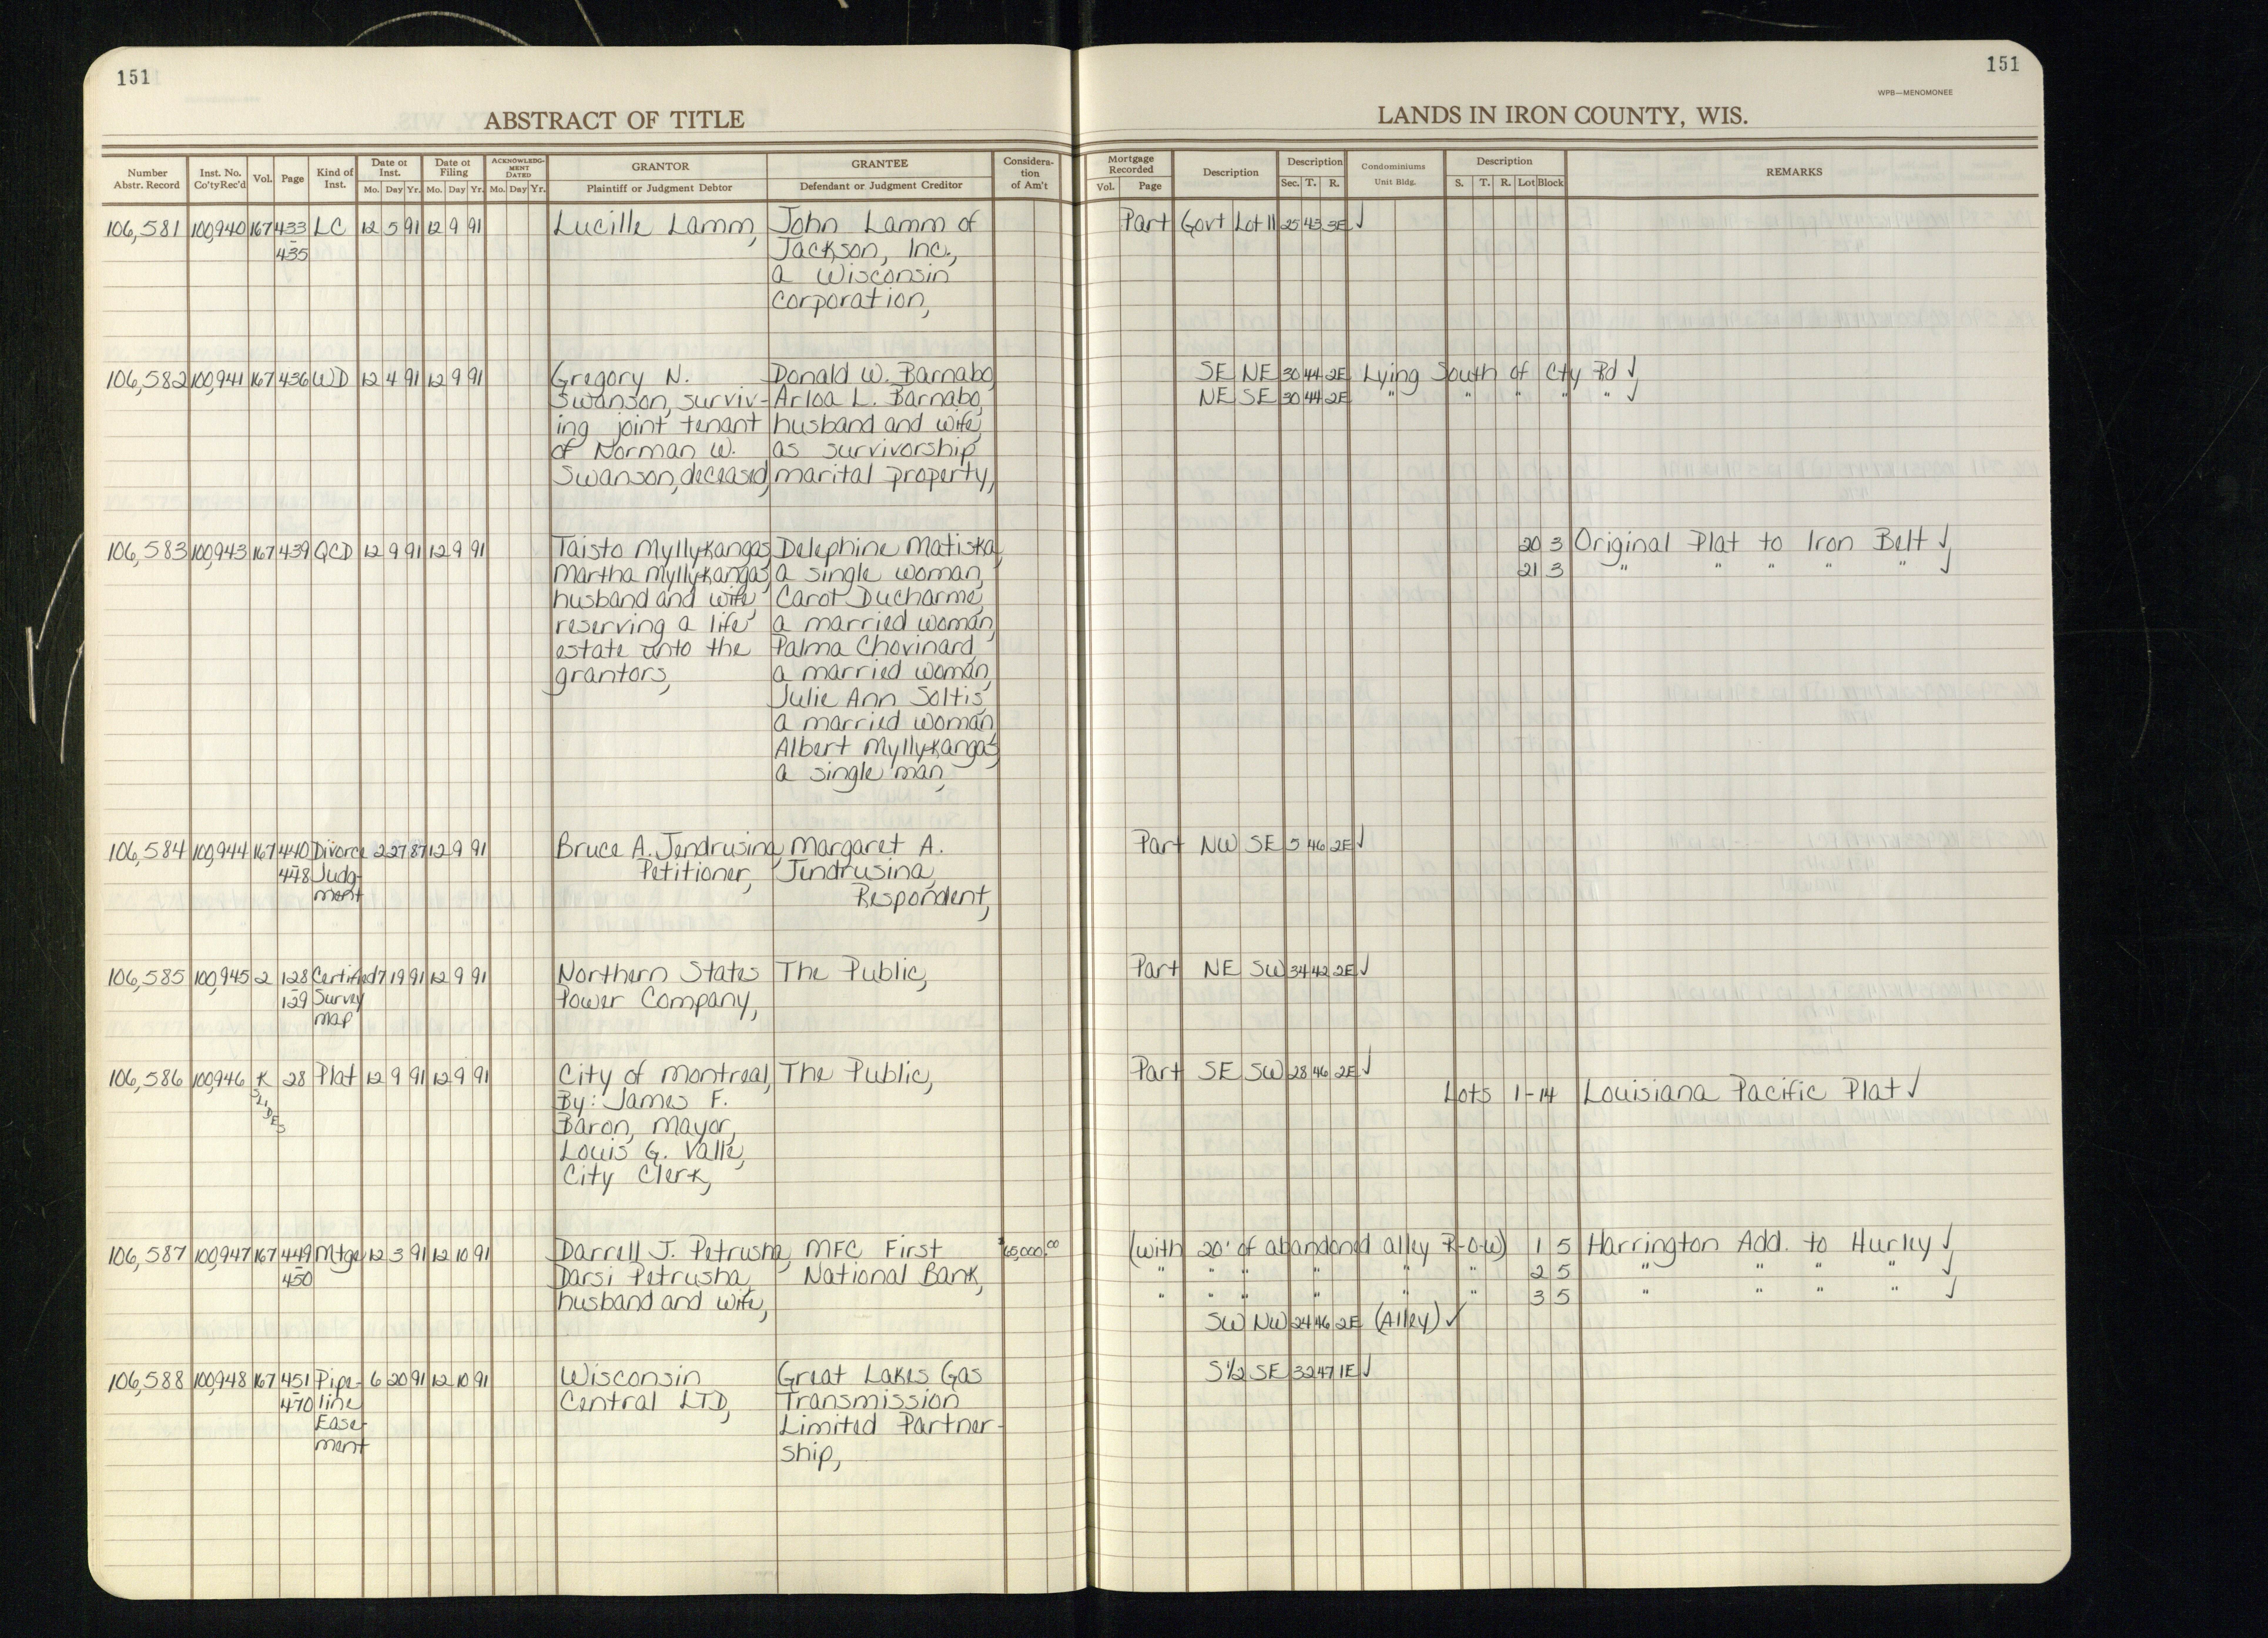 151
151
WPB—MENOMONEE
ABSTRACT OF TITLE
LANDS IN IRON COUNTY, WIS.
Number Abstr. Record | Inst. No. Co'ty Rec'd | Vol. | Page | Kind of Inst. | Date of Inst. Mo. Day Yr. | Date of Filing Mo. Day Yr. | ACKNOWLEDGMENT DATED Mo. Day Yr. | GRANTOR Plaintiff or Judgment Debtor | GRANTEE Defendant or Judgment Creditor | Consideration of Am't | Mortgage Recorded Vol. Page | Description | Description Sec. T. R. | Condominiums Unit Bldg. | Description S. T. R. Lot Block | REMARKS
106,581 100,940 167 433 LC 12 5 91 12 9 91 Lucille Lamm, John Lamm of Part Govt Lot 11 25 43 3E ✓
- 435 Jackson, Inc.,
a Wisconsin
corporation,
106,582 100,941 167 436 WD 12 4 91 12 9 91 Gregory N. Donald W. Barnabo, SE NE 30 44 2E Lying South of Cty Rd ✓
Swanson, surviv- Arloa L. Barnabo, NE SE 30 44 2E " " " " " ✓
ing joint tenant husband and wife,
of Norman W. as survivorship
Swanson, deceased, marital property,
106,583 100,943 167 439 QCD 12 9 91 12 9 91 Taisto Myllykangas, Delephine Matiska, 20 3 Original Plat to Iron Belt ✓
Martha Myllykangas, a single woman, 21 3 " " " " " ✓
husband and wife, Carot Ducharme,
reserving a life a married woman,
estate unto the Palma Chovinard,
grantors, a married woman,
Julie Ann Soltis,
a married woman,
Albert Myllykangas,
a single man,
106,584 100,944 167 440 Divorce 2 27 87 12 9 91 Bruce A. Jendrusina, Margaret A. Part NW SE 5 46 2E ✓
- 448 Judg- Petitioner, Jendrusina,
ment Respondent,
106,585 100,945 2 128 Certified 7 19 91 12 9 91 Northern States The Public, Part NE SW 34 42 2E ✓
- 129 Survey Power Company,
Map
106,586 100,946 K 28 Plat 12 9 91 12 9 91 City of Montreal, The Public, Part SE SW 28 46 2E ✓
SLIDES By: James F. Lots 1-14 Louisiana Pacific Plat ✓
Baron, Mayor,
Louis G. Valle,
City Clerk,
106,587 100,947 167 449 Mtge 12 3 91 12 10 91 Darrell J. Petrusha, MFC First $65,000.00 (with 20' of abandoned alley R-O-W) 1 5 Harrington Add. to Hurley ✓
- 450 Darsi Petrusha, National Bank, " " " " " " 2 5 " " " " ✓
husband and wife, " " " " " " 3 5 " " " " ✓
SW NW 24 46 2E (Alley) ✓
106,588 100,948 167 451 Pipe- 6 20 91 12 10 91 Wisconsin Great Lakes Gas S½ SE 32 47 1E ✓
- 470 line Central LTD, Transmission
Ease- Limited Partner-
ment ship,